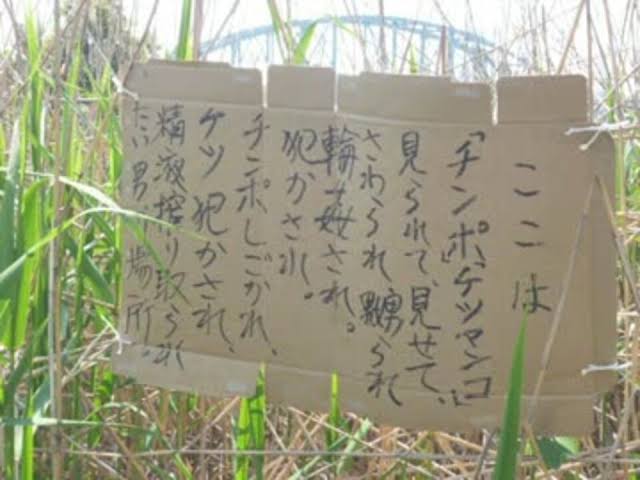 ここは
「チンポ、ケツマンコ」
見られて、見せて、
さわられ嬲られ
輪姦され。
犯かされ。
チンポしごかれ、
ケツ犯かされ、
精液搾り取られ
たい男の場所。